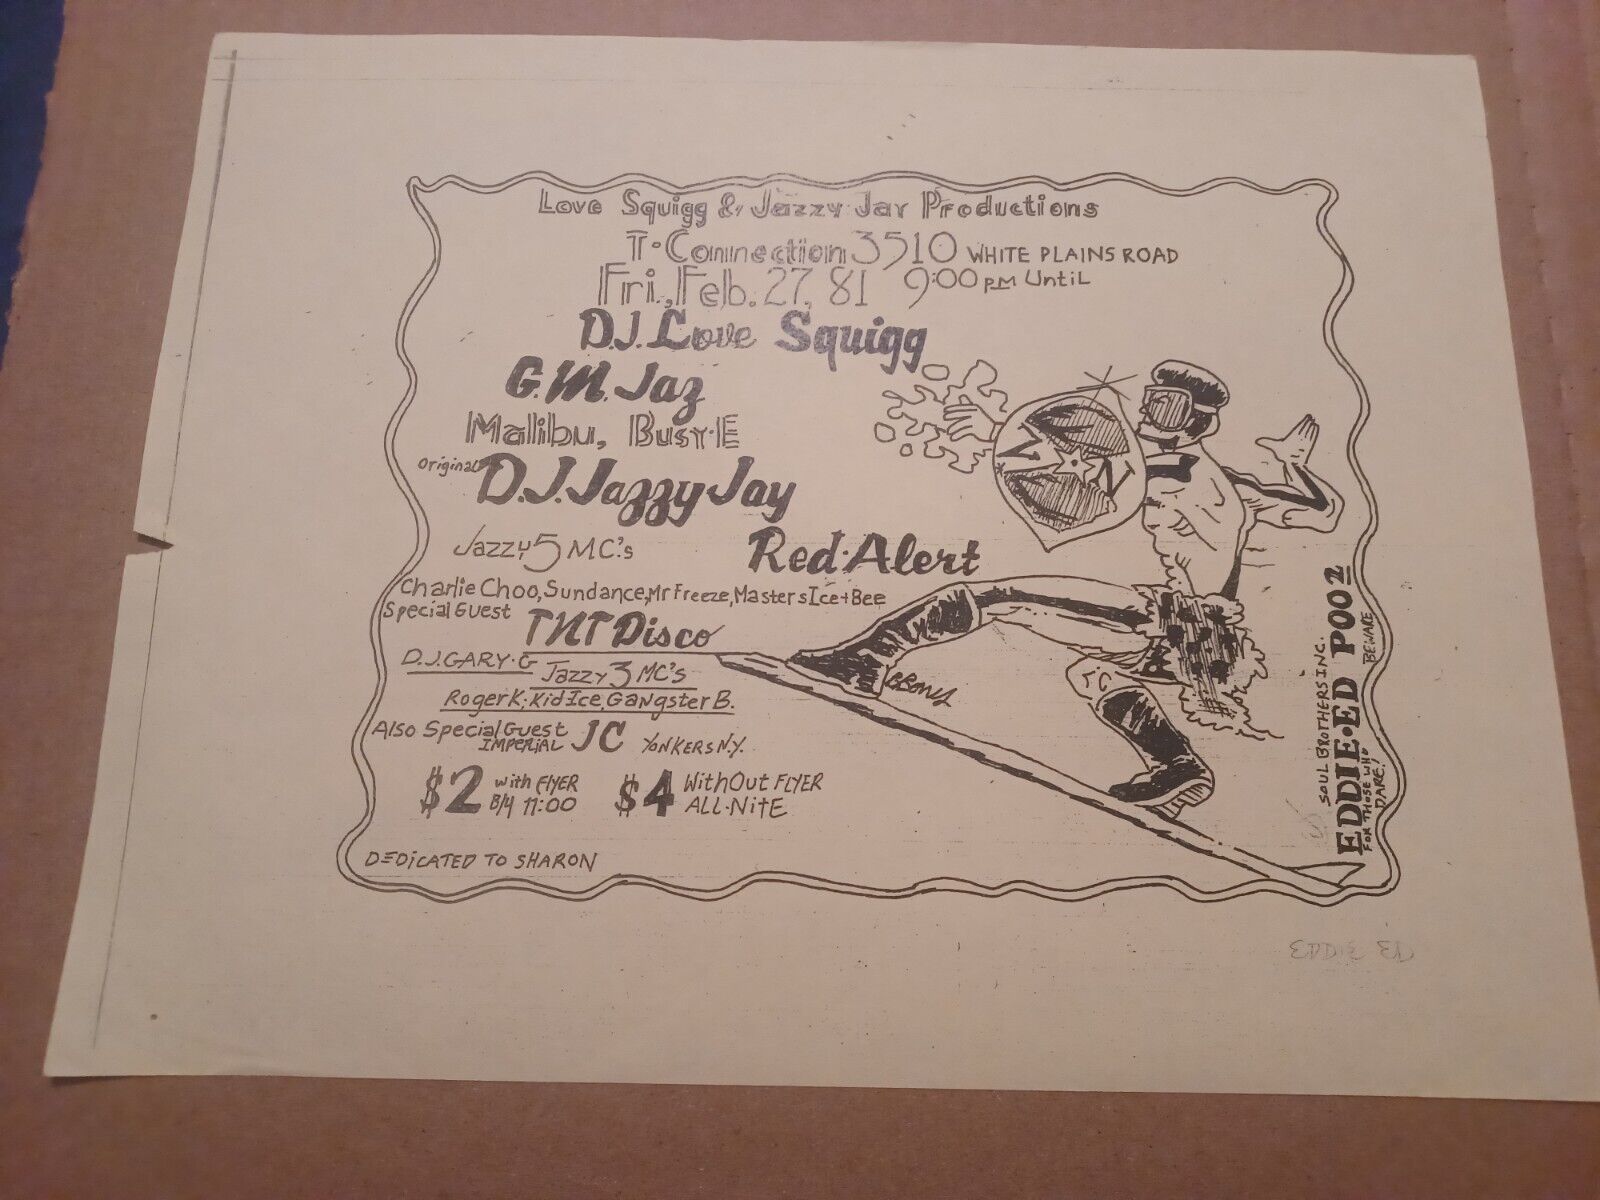 Love Squigg & Jazzy Jay Productions
T-Connection 3510 WHITE PLAINS ROAD
Fri., Feb. 27, 81 9:00 PM Until
D.J. Love Squigg
G.M. Jaz
Malibu, Busy-E
Original D.J. Jazzy Jay
Jazzy 5 MC.'s Red-Alert
Charlie Choo, Sundance, Mr Freeze, Masters Ice + Bee
Special Guest TNT Disco
D.J. GARY-G Jazzy 3 MC'S
Roger K. Kid Ice, Gangster B.
Also Special Guest
IMPERIAL JC YONKERS N.Y.
$2 with FLYER B/4 11:00 $4 WithOut FLYER ALL-NitE
DEDICATED TO SHARON
SOUL BROTHERS INC.
EDDIE-ED POO 2
FOR THOSE WHO DARE! BEWARE
EDDIE ED